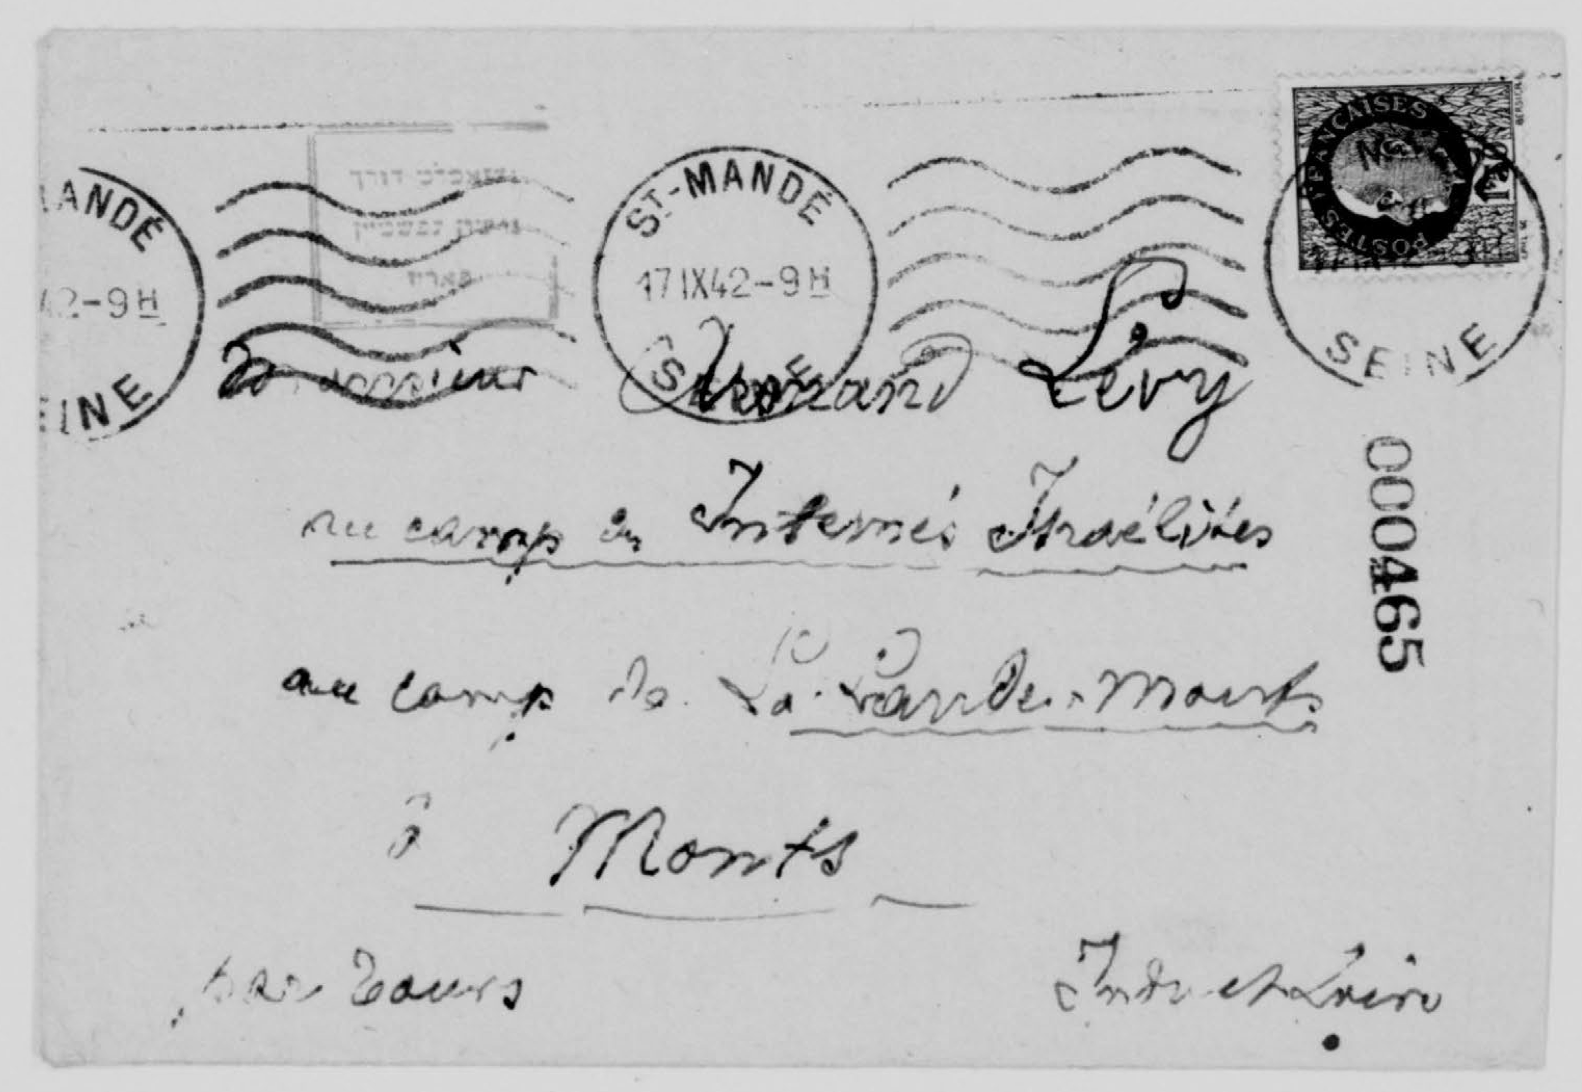 ST-MANDÉ
17 IX 42-9H
SEINE
ANDÉ
42-9H
EINE
POSTES FRANÇAISES
SEINE
פאריז
Monsieur Armand Lévy
au camp des Internés Israélites
au camp de La Lande-Monts
à Monts
par Tours
Indre et Loire
000465